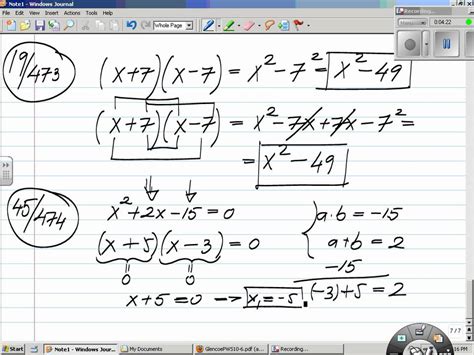 Note1 - Windows Journal
Recording...
File Edit View Insert Actions Tools Help
Whole Page
00:04:22
19/473
(x+7)(x-7) = x² - 7² = x² - 49
(x+7)(x-7) = x² - 7x + 7x - 7² =
= x² - 49
45/474
x² + 2x - 15 = 0
a·b = -15
(x + 5)(x - 3) = 0
a+b = 2
0 0
-15
x + 5 = 0 → x₁ = -5. (-3)+5 = 2
7/7
Note1 - Windows Jour...
My Documents
GlencoePW510-6.pdf (a...
Recording...